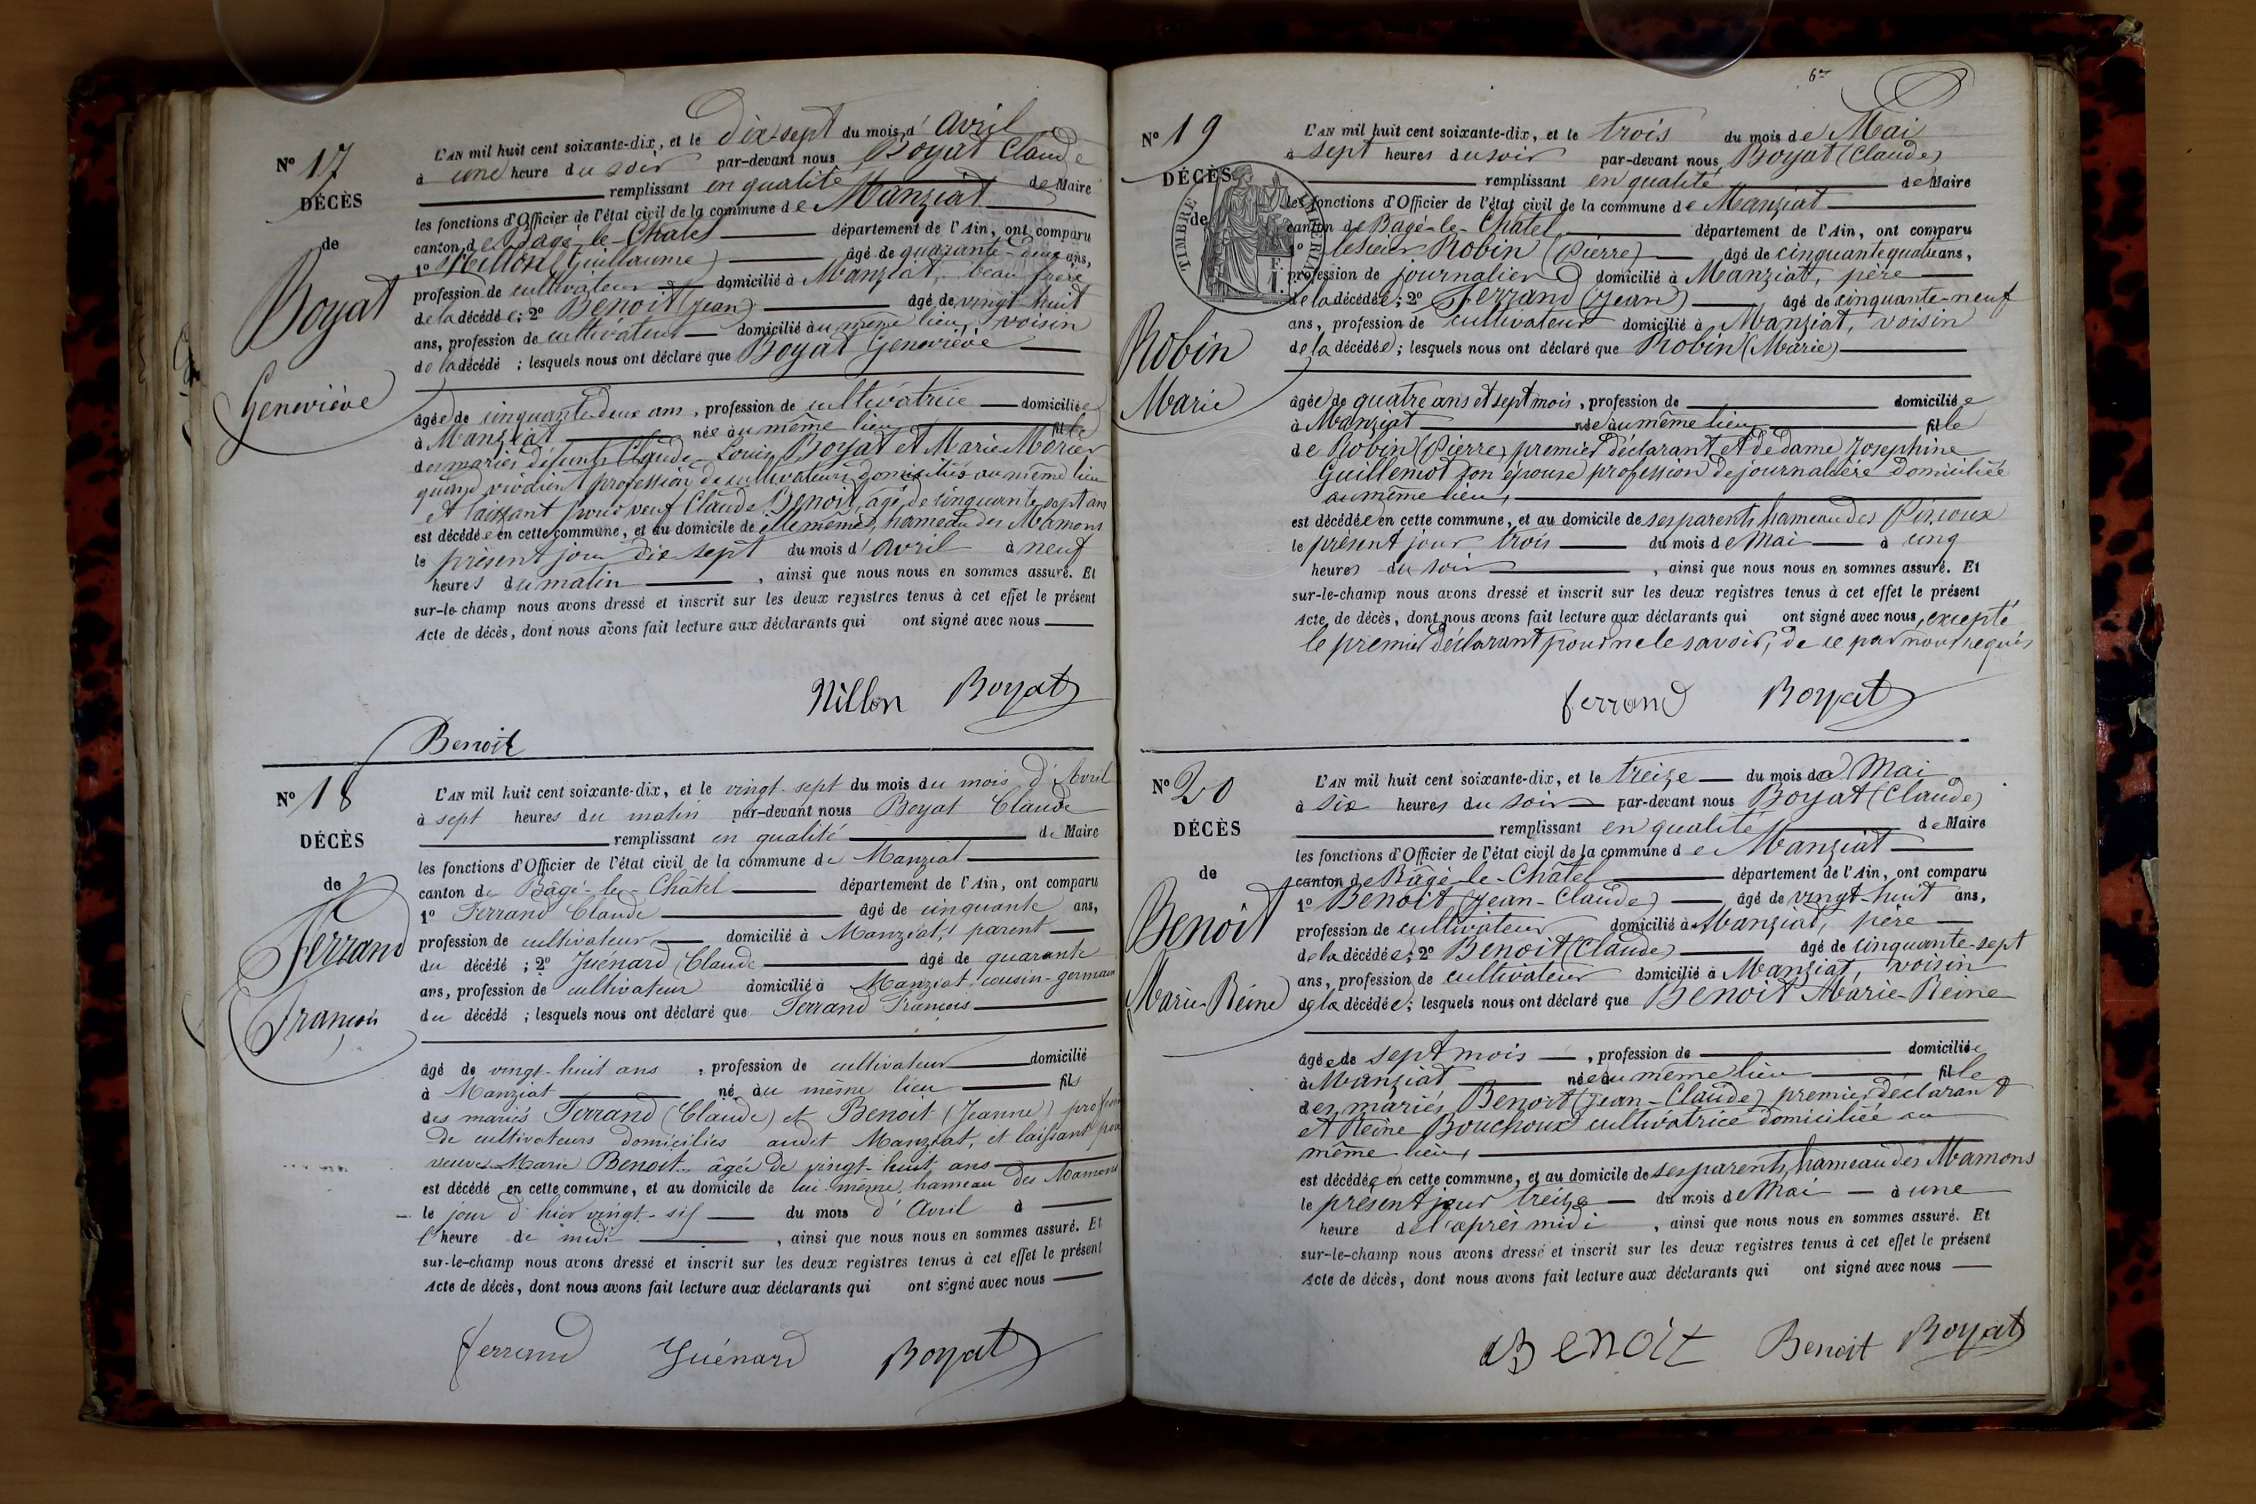 L'AN mil huit cent soixante-dix, et le Dix sept du mois d'avril
N° 17
à une heure du soir par-devant nous Boyat Claude
remplissant en qualité de Maire
DÉCÈS
les fonctions d'Officier de l'état civil de la commune de Manziat
de
canton de Bagé-le-Chatel département de l'Ain, ont comparu
1° Nillon (Guillaume) âgé de quarante-deux ans,
profession de cultivateur domicilié à Manziat, beau frère
Boyat
de la décédée; 2° Benoit (jean) âgé de vingt huit
ans, profession de cultivateur domicilié au même lieu, voisin
de la décédé ; lesquels nous ont déclaré que Boyat Geneviève
Geneviève
âgée de cinquante deux ans, profession de cultivatrice domiciliée
à Manziat née au même lieu fille
des mariés défunts Claude-Louis Boyat et Marie Morier
quand vivaient profession de cultivateurs domiciliés au même lieu
et laissant pour veuf Claude Benoit, âgé de cinquante sept ans
est décédée en cette commune, et au domicile de elle même, hameau des Mamons
le présent jour dix sept du mois d'avril à neuf
heures du matin , ainsi que nous nous en sommes assuré. Et
sur-le-champ nous avons dressé et inscrit sur les deux registres tenus à cet effet le présent
Acte de décès, dont nous avons fait lecture aux déclarants qui ont signé avec nous
Nillon Boyat
Benoit
N° 18
L'AN mil huit cent soixante-dix, et le vingt-sept du mois du mois d'Avril
à sept heures du matin par-devant nous Boyat Claude
DÉCÈS
remplissant en qualité de Maire
les fonctions d'Officier de l'état civil de la commune de Manziat
de
canton de Bâgé-le-Châtel département de l'Ain, ont comparu
1° Ferrand Claude âgé de cinquante ans,
Ferrand
profession de cultivateur domicilié à Manziat, parent
du décédé ; 2° Guénard Claude âgé de quarante
ans, profession de cultivateur domicilié à Manziat, cousin-germain
François
du décédé ; lesquels nous ont déclaré que Ferrand Francois
âgé de vingt-huit ans , profession de cultivateur domicilié
à Manziat né au même lieu fils
des mariés Ferrand (Claude) et Benoit (Jeanne) profession
de cultivateurs domiciliés audit Manziat, et laissant pour
veuve Marie Benoit âgée de vingt-huit ans
est décédé en cette commune, et au domicile de lui-même, hameau des Mamons
le jour d'hier vingt-six du mois d'Avril à
l'heure de midi , ainsi que nous nous en sommes assuré. Et
sur-le-champ nous avons dressé et inscrit sur les deux registres tenus à cet effet le présent
Acte de décès, dont nous avons fait lecture aux déclarants qui ont signé avec nous
ferrand Guénard Boyat
N° 19
L'AN mil huit cent soixante-dix, et le trois du mois de Mai
à sept heures du soir par-devant nous Boyat (Claude)
DÉCÈS
remplissant en qualité de Maire
TIMBRE IMPERIAL
de
les fonctions d'Officier de l'état civil de la commune de Manziat
canton de Bagé-le-Châtel département de l'Ain, ont comparu
1° le sieur Robin (Pierre) âgé de cinquante quatre ans,
profession de journalier domicilié à Manziat, père
de la décédée; 2° Ferrand (jean) âgé de cinquante-neuf
ans, profession de cultivateur domicilié à Manziat, voisin
Robin
de la décédée; lesquels nous ont déclaré que Robin (Marie)
Marie
âgée de quatre ans et sept mois, profession de domiciliée
à Manziat née au même lieu fille
de Robin (Pierre) premier déclarant et de dame Josephine
Guillemot son épouse profession de journalière domiciliée
au même lieu,
est décédée en cette commune, et au domicile de ses parents, hameau des Pinoux
le présent jour trois du mois de Mai à cinq
heures du soir , ainsi que nous nous en sommes assuré. Et
sur-le-champ nous avons dressé et inscrit sur les deux registres tenus à cet effet le présent
Acte de décès, dont nous avons fait lecture aux déclarants qui ont signé avec nous, excepté
le premier déclarant pour ne le savoir, de ce par nous requis
ferrand Boyat
N° 20
L'AN mil huit cent soixante-dix, et le treize du mois de Mai
à six heures du soir par-devant nous Boyat (Claude)
DÉCÈS
remplissant en qualité de Maire
les fonctions d'Officier de l'état civil de la commune de Manziat
de
canton de Bâgé-le-Châtel département de l'Ain, ont comparu
1° Benoit (Jean-Claude) âgé de vingt-huit ans,
Benoit
profession de cultivateur domicilié à Manziat, père
de la décédée; 2° Benoit (Claude) âgé de cinquante-sept
ans, profession de cultivateur domicilié à Manziat, voisin
Marie-Reine
de la décédée; lesquels nous ont déclaré que Benoit Marie-Reine
âgée de sept mois , profession de domiciliée
à Manziat née au même lieu fille
des mariés Benoit (Jean-Claude) premier déclarant
et Reine Bouchoux cultivatrice domiciliée au
même lieu,
est décédée en cette commune, et au domicile de ses parents, hameau des Mamons
le présent jour treize du mois de Mai à une
heure de l'après midi , ainsi que nous nous en sommes assuré. Et
sur-le-champ nous avons dressé et inscrit sur les deux registres tenus à cet effet le présent
Acte de décès, dont nous avons fait lecture aux déclarants qui ont signé avec nous
Benoit Benoit Boyat